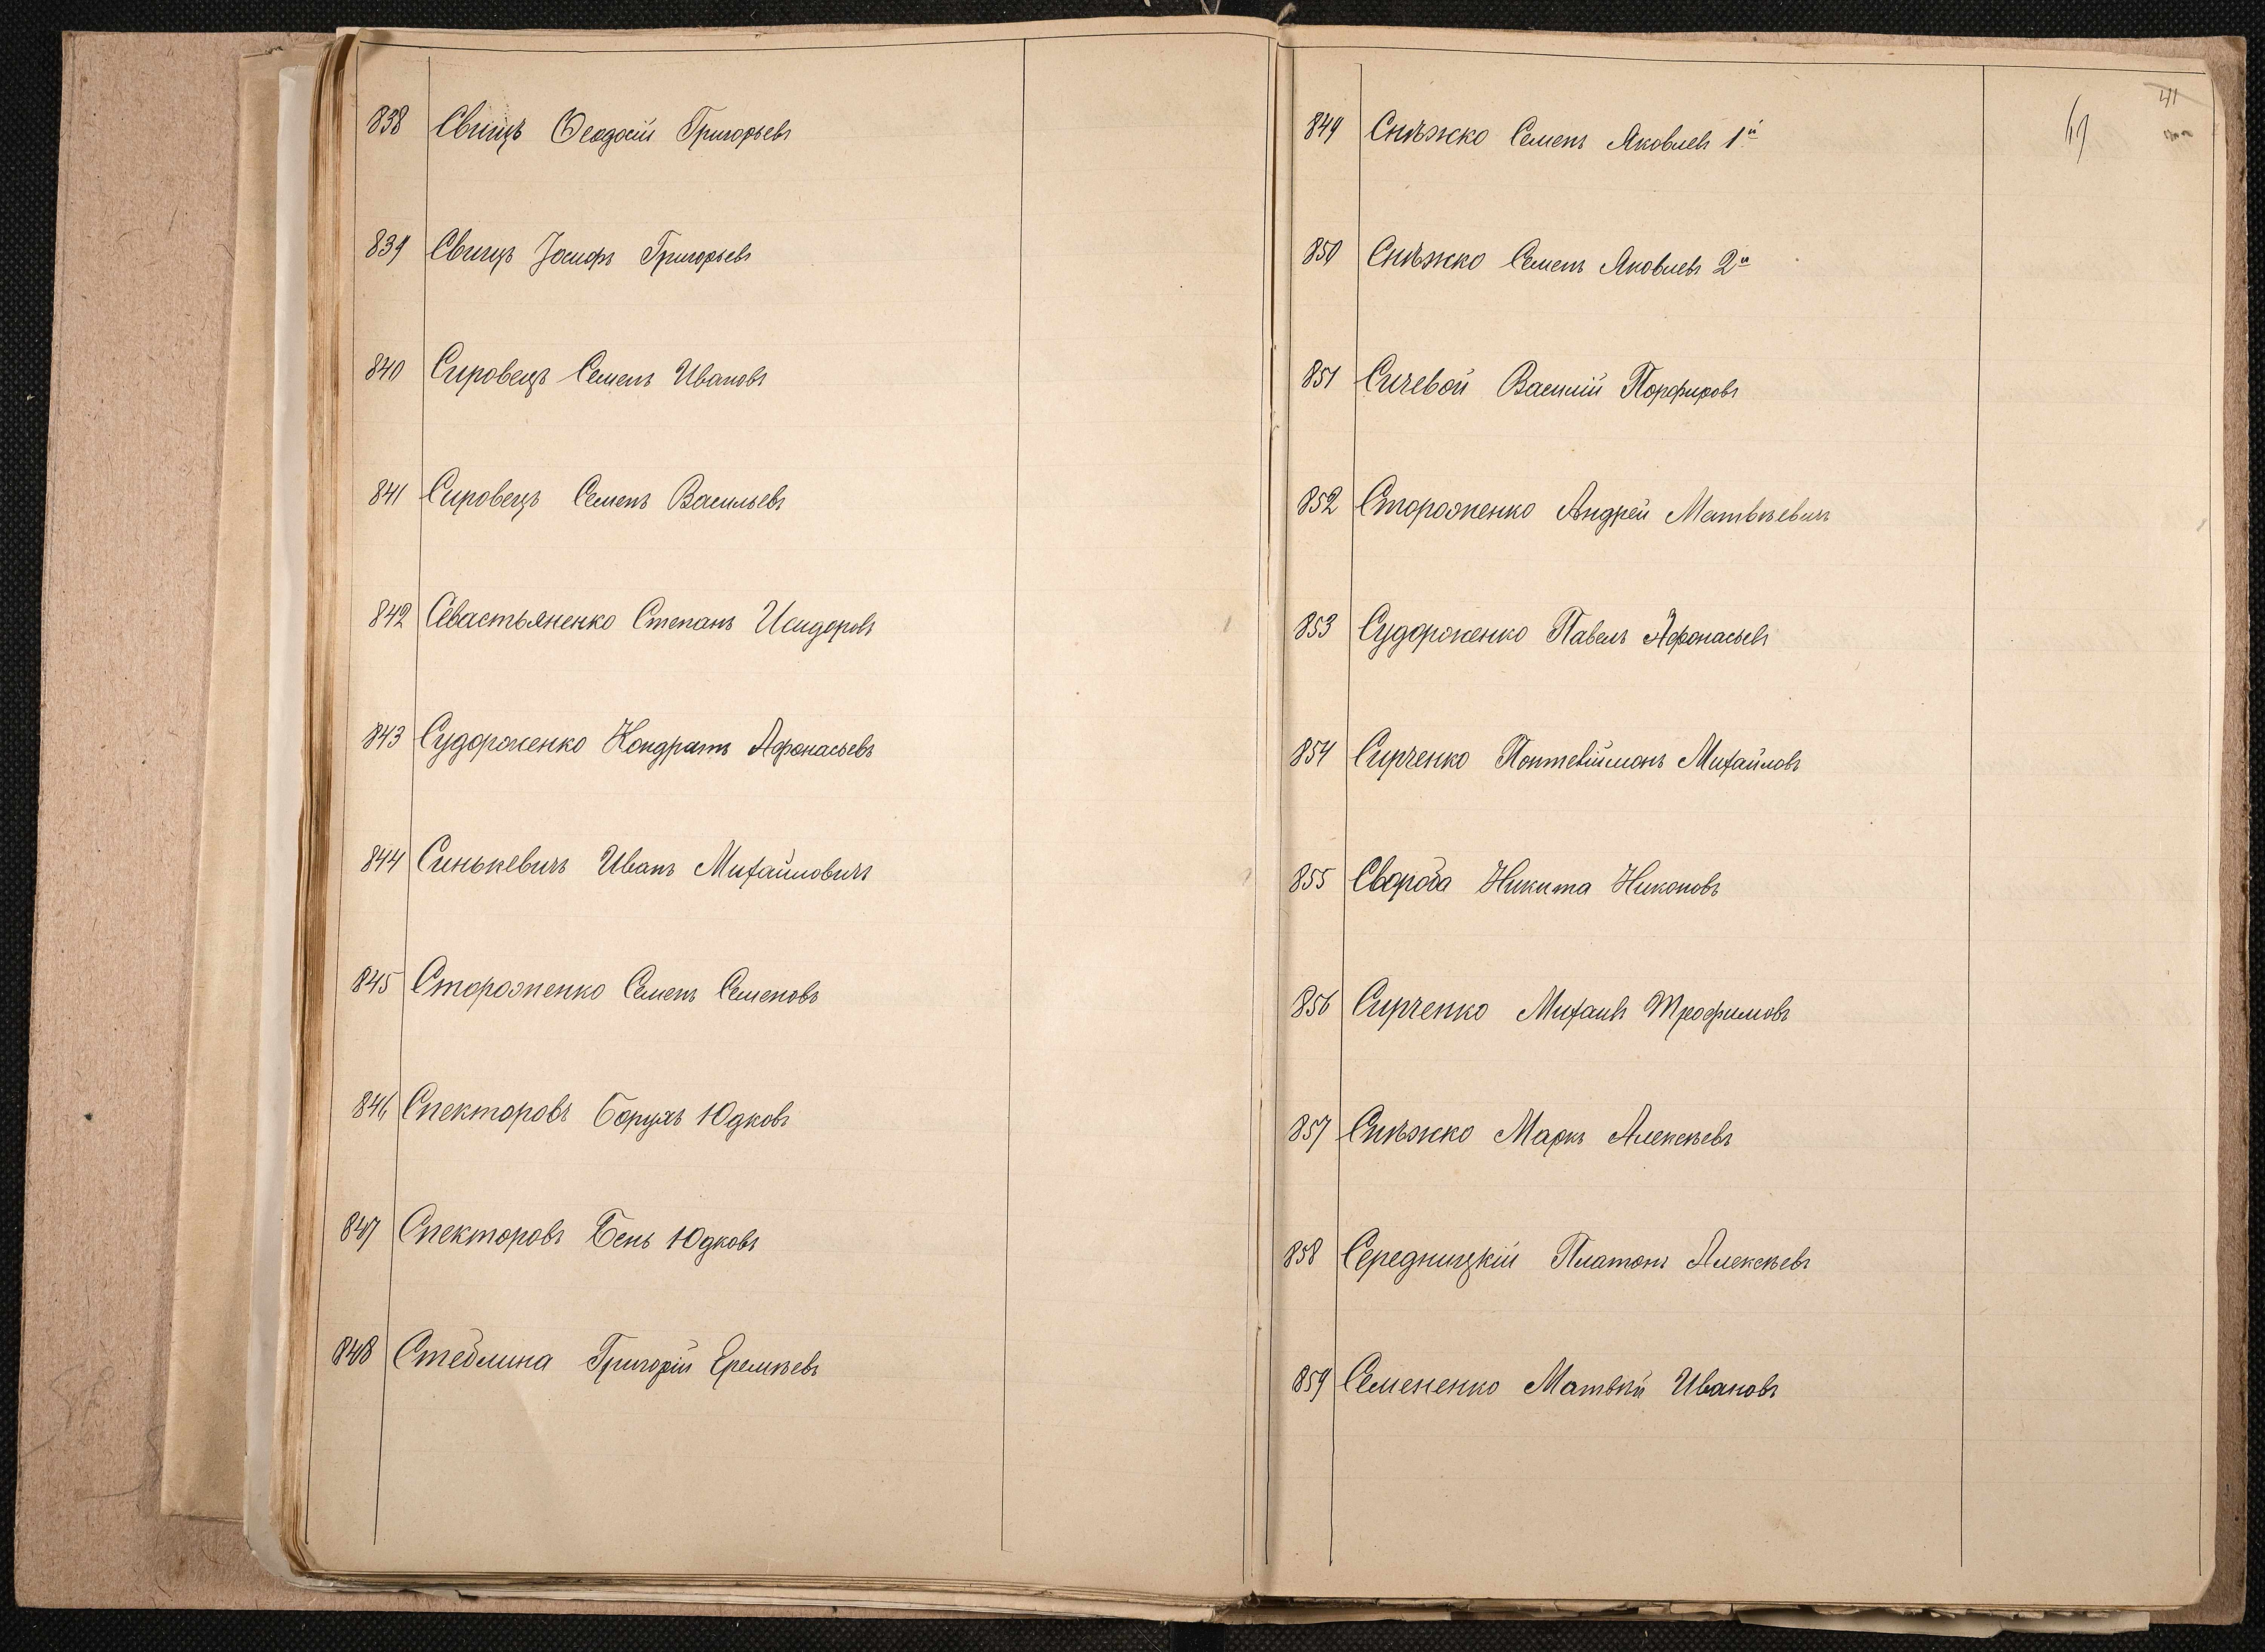 838 Свищъ Ѳеодосій Григорьевъ
839 Свищъ Іосифъ Григорьевъ
840 Сировецъ Семенъ Ивановъ
841 Сировецъ Семенъ Васильевъ
842 Севастьяненко Степанъ Исидоровъ
843 Судороженко Кондратъ Афонасьевъ
844 Синькевичъ Иванъ Михайловичъ
845 Стороженко Семенъ Семеновъ
846 Спекторовъ Борухъ Юдковъ
847 Спекторовъ Бень Юдковъ
848 Стеблина Григорій Еремѣевъ
849 Снѣжко Семенъ Яковлевъ 1й
850 Снѣжко Семенъ Яковлевъ 2й
851 Сичевой Василій Порфировъ
852 Стороженко Андрей Матвѣевичъ
853 Судороженко Павелъ Афонасьевъ
854 Сирченко Понтеліимонъ Михайловъ
855 Свороба Никита Никоновъ
856 Сирченко Михаилъ Трофимовъ
857 Снѣжко Маркъ Алексѣевъ
858 Середницкій Платонъ Алексѣевъ
859 Семененко Матвѣй Ивановъ
41